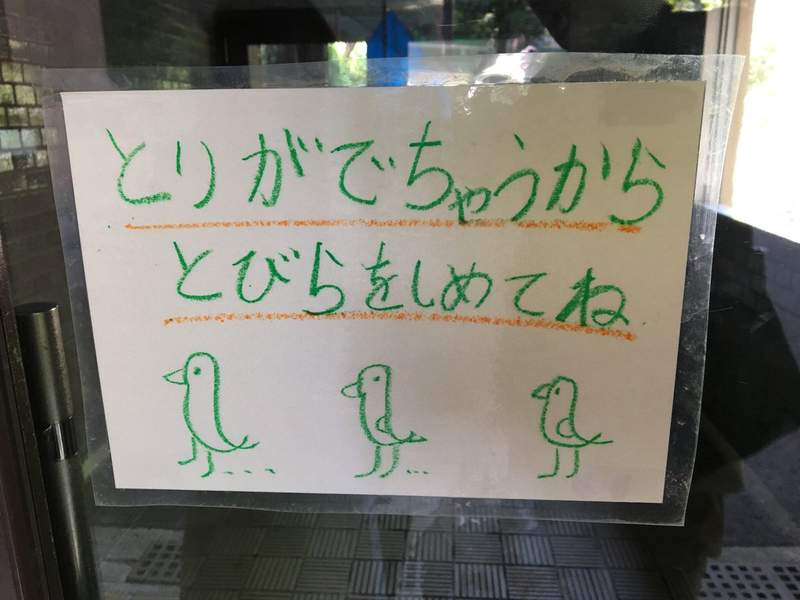 とりがでちゃうから
とびらをしめてね